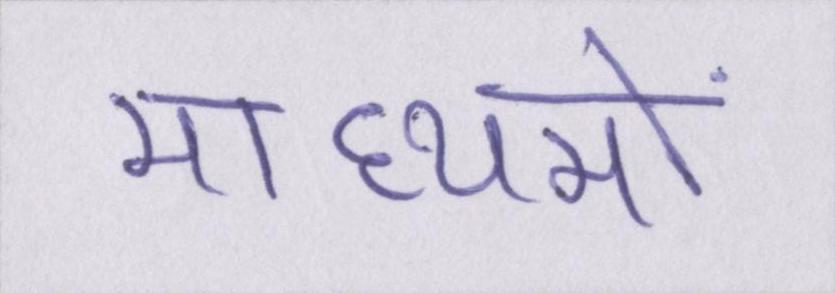 माध्यमों